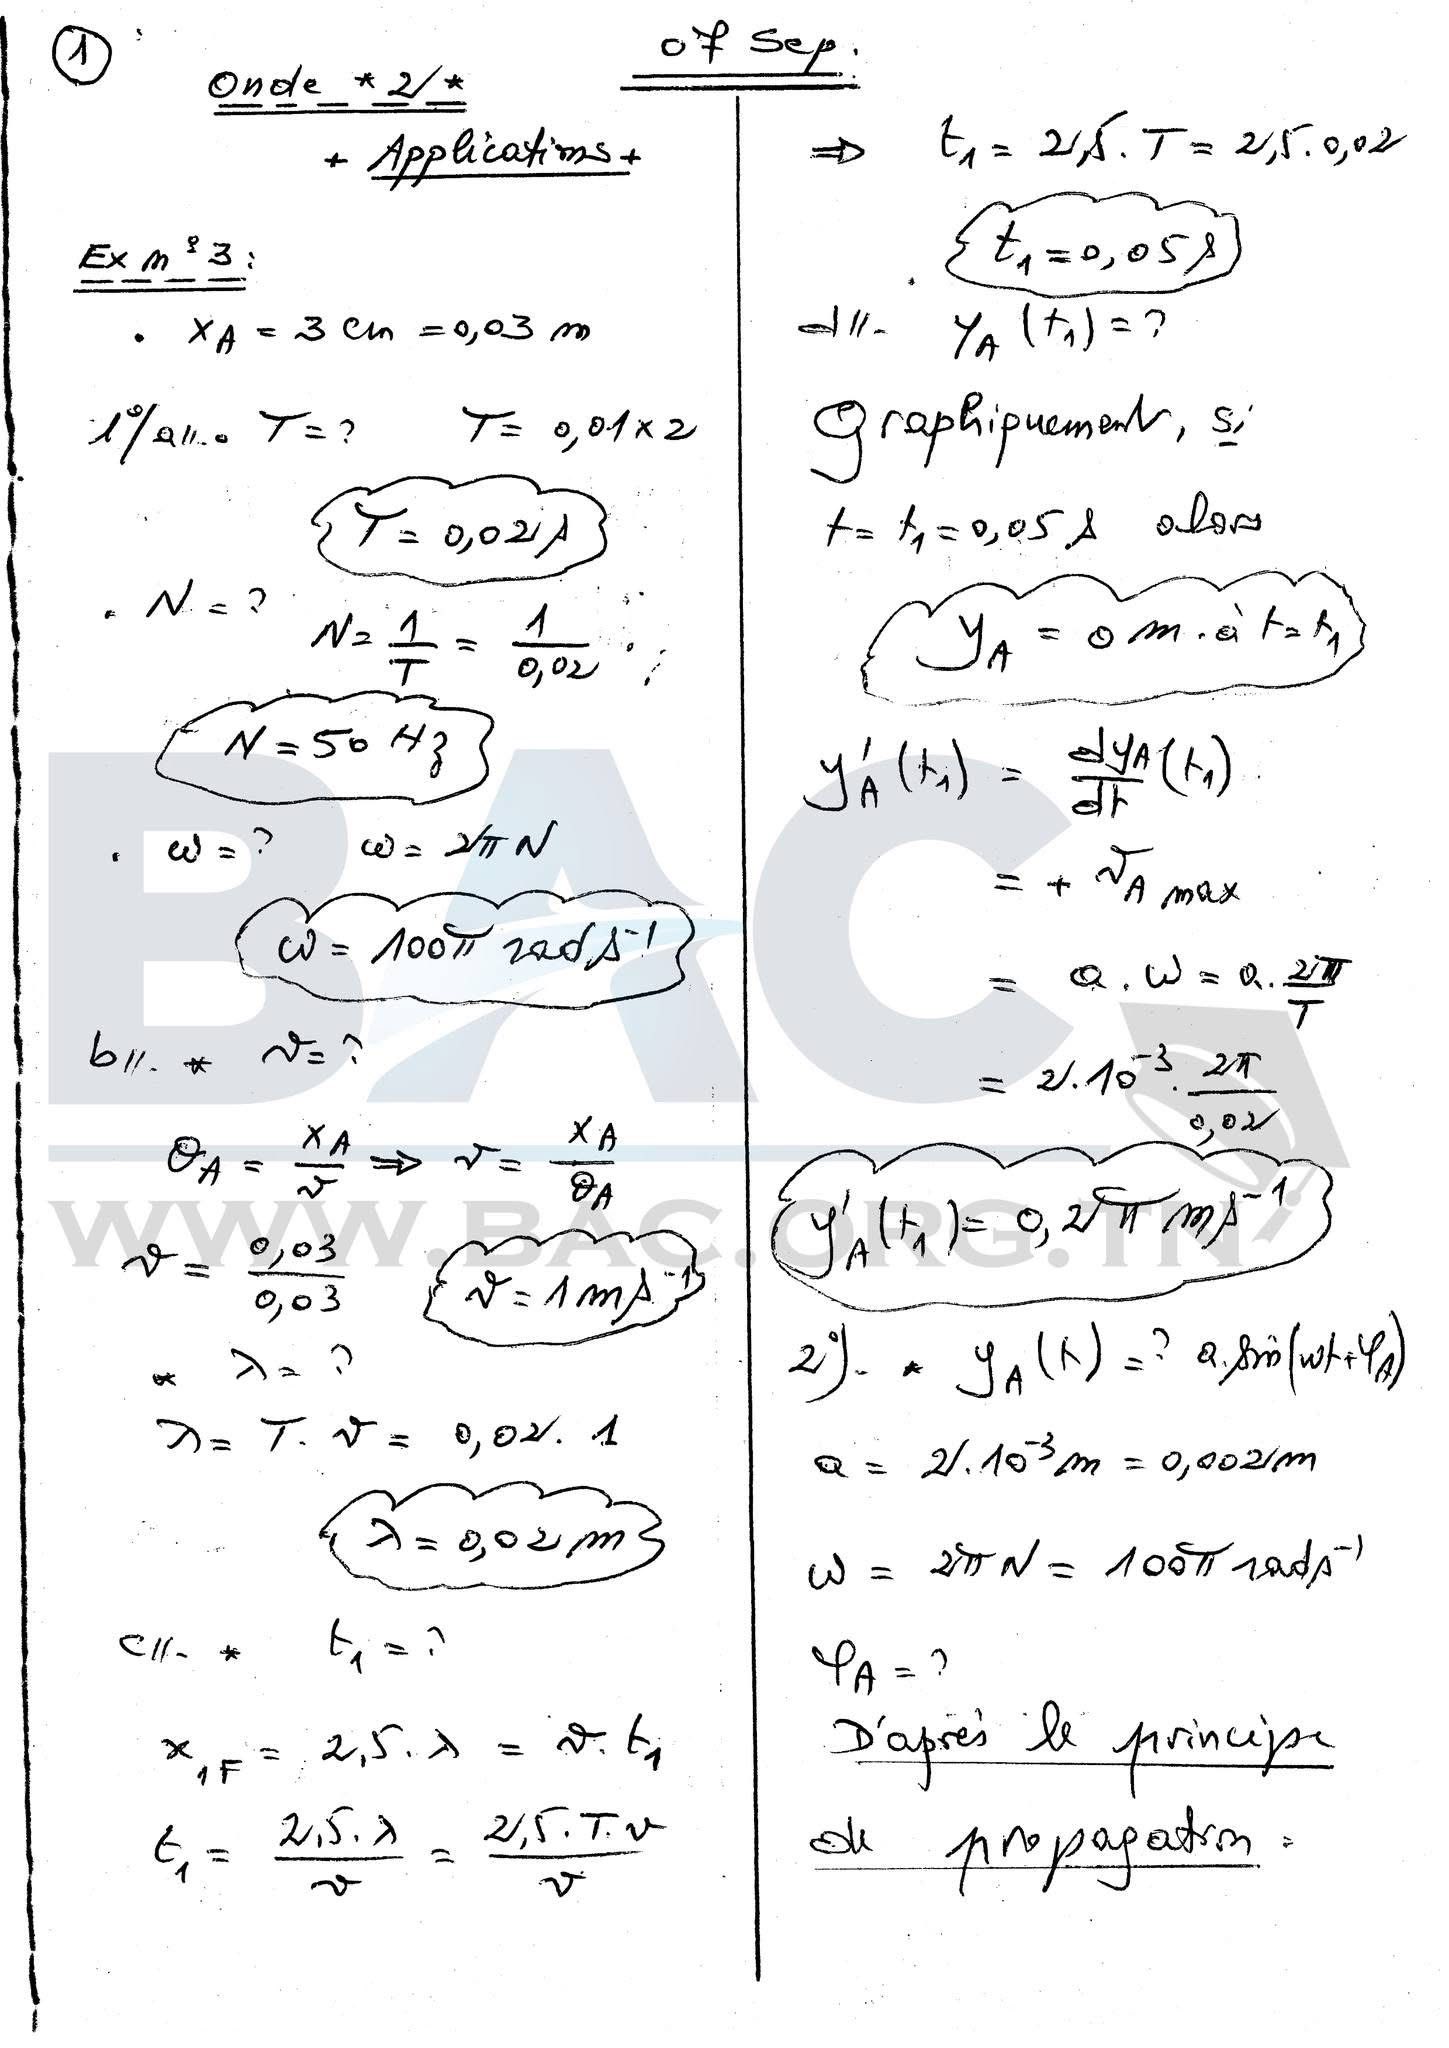 1
07 Sep.
Onde * 2 *
+ Applications +
Ex n° 3 :
. xA = 3 cm = 0,03 m
1°/ a//. . T = ? T = 0,01 x 2
T = 0,02 s
. N = ? N = 1/T = 1/0,02
N = 50 Hz
. ω = ? ω = 2π N
ω = 100π rad.s⁻¹
b//. * v = ?
θA = xA/v ⇒ v = xA/θA
v = 0,03/0,03 v = 1 m s⁻¹
* λ = ?
λ = T. v = 0,02. 1
λ = 0,02 m
c//- * t₁ = ?
x₁F = 2,5. λ = v. t₁
t₁ = 2,5. λ/v = 2,5. T. v/v
⇒ t₁ = 2,5. T = 2,5. 0,02
t₁ = 0,05 s
d//- yA (t₁) = ?
Graphiquement, si
t = t₁ = 0,05 s alors
yA = 0 m. à t = t₁
y'A (t₁) = dyA/dt (t₁)
= + vA max
= a. ω = a. 2π/T
= 2. 10⁻³. 2π/0,02
y'A (t₁) = 0,2π m s⁻¹
2°)- * yA (t) = ? a. sin(ωt + φA)
a = 2. 10⁻³ m = 0,002 m
ω = 2π N = 100π rad s⁻¹
φA = ?
D'après le principe
de propagation :
BAC
WWW.BAC.ORG.TN